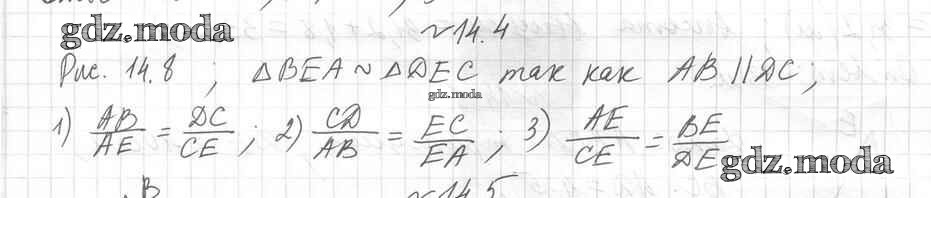 gdz.moda
№14.4
Рис. 14.8 ; △BEA ~ △DEC так как AB || DC;
gdz.moda
1) AB/AE = DC/CE ; 2) CD/AB = EC/EA ; 3) AE/CE = BE/DE
gdz.moda
B №14.5